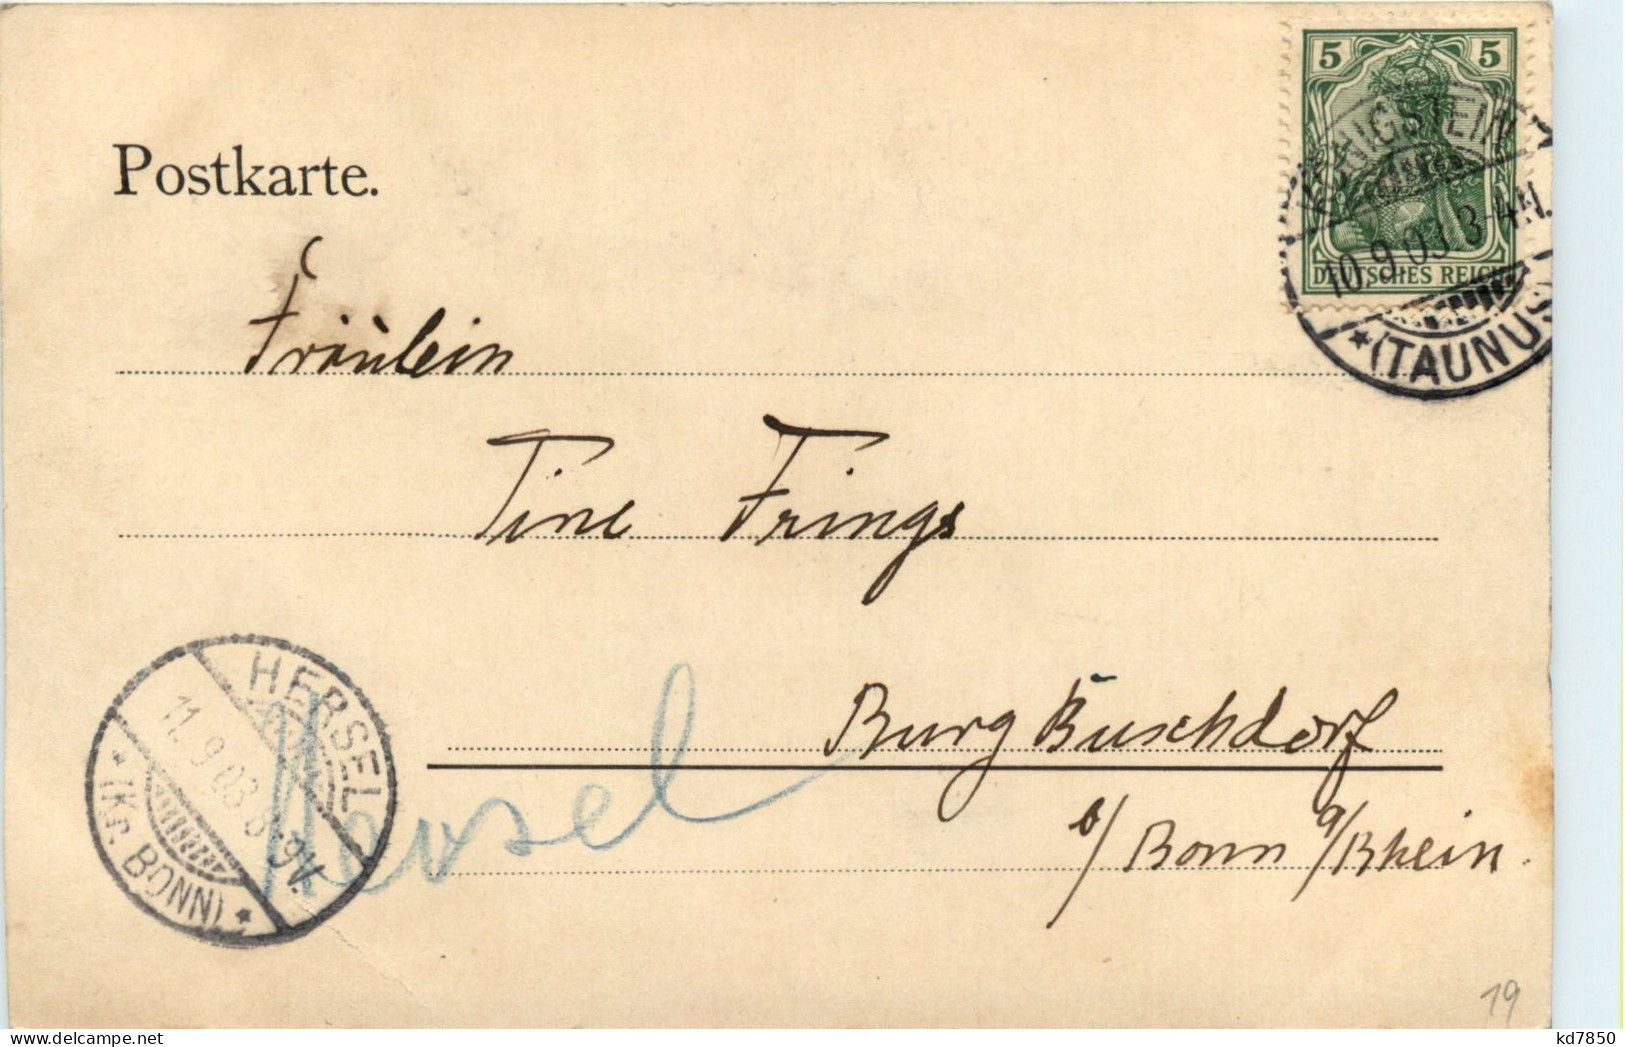 5 5
KÖNIGSTEIN
10.9.03 3-4N.
DEUTSCHES REICH
* (TAUNUS
Postkarte.
Fräulein
Tine Frings
HERSEL
11.9.03 8-9V.
* (Kr. BONN) *
Hersel
Burg Buschdorf
b/ Bonn a/Rhein.
19
kd7850